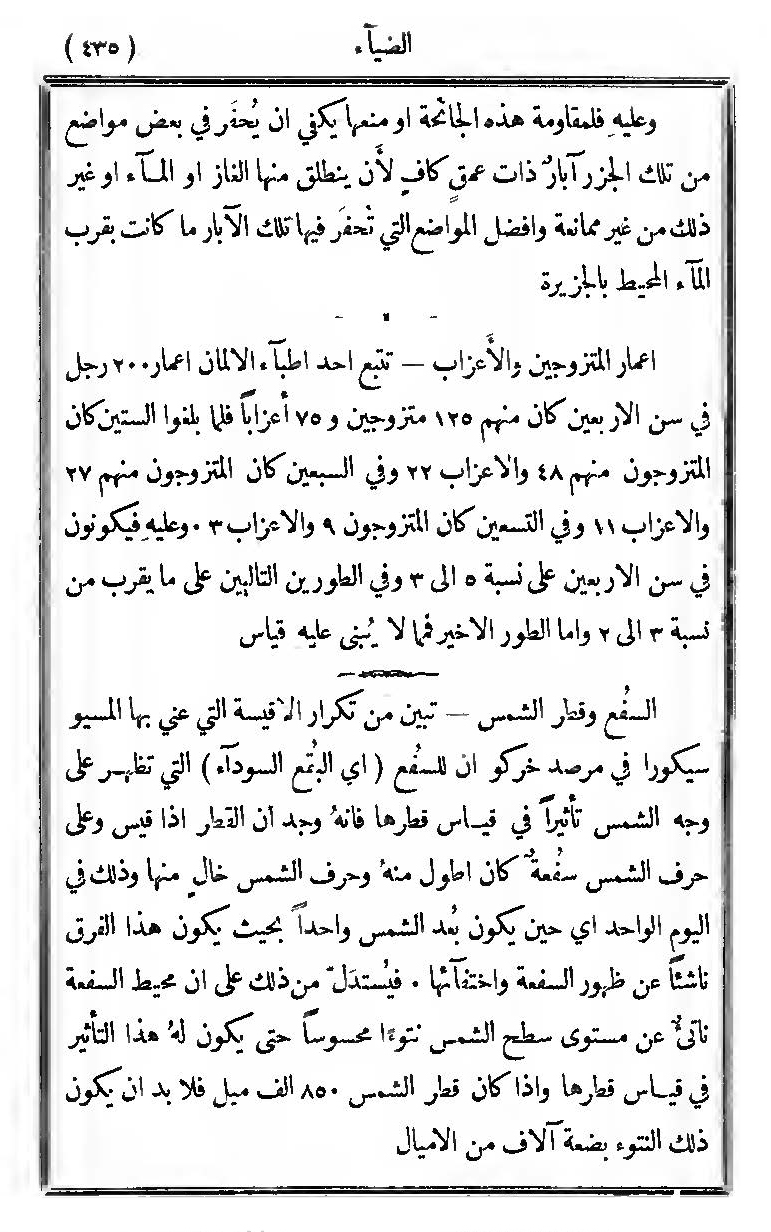 الضيآء
(٤٣٥)
وعليهِ فلمقاومة هذه الجائحة او منعها يكفي ان يُحفَر في بعض مواضع
من تلك الجزر آبارٌ ذات عمقٍ كافٍ لأن ينطلق منها الغاز او المآء او غير
ذلك من غير ممانعة وافضل المواضع التي تُحفَر فيها تلك الآبار ما كانت بقرب
المآء المحيط بالجزيرة
اعمار المتزوجين والأَعزاب — تتبع احد اطبآء الالمان اعمار ٢٠٠ رجل
في سن الاربعين كان منهم ١٢٥ متزوجين و ٧٥ أعزاباً فلما بلغوا الستين كان
المتزوجون منهم ٤٨ والاعزاب ٢٢ وفي السبعين كان المتزوجون منهم ٢٧
والاعزاب ١١ وفي التسعين كان المتزوجون ٩ والاعزاب ٣ . وعليهِ فيكونون
في سن الاربعين على نسبة ٥ الى ٣ وفي الطورين التاليين على ما يقرب من
نسبة ٣ الى ٢ واما الطور الاخير فمما لا يُبنى عليه قياس
السُفَع وقطر الشمس — تبين من تكرار الاقيسة التي عني بها المسيو
سيكورا في مرصد خركو ان للسُفَع (اي البُقَع السودآء) التي تظهر على
وجه الشمس تأثيراً في قياس قطرها فانهُ وجد أن القطر اذا قيس وعلى
حرف الشمس سُفعةٌ كان اطول منهُ وحرف الشمس خالٍ منها وذلك في
اليوم الواحد اي حين يكون بُعد الشمس واحداً بحيث يكون هذا الفرق
ناشئاً عن ظهور السفعة واختفآئها . فيُستدَلّ من ذلك على ان محيط السفعة
ناتئٌ عن مستوى سطح الشمس نتوءًا محسوساً حتى يكون لهُ هذا التأثير
في قياس قطرها واذا كان قطر الشمس ٨٥٠ الف ميل فلا بد ان يكون
ذلك النتوء بضعة آلاف من الاميال